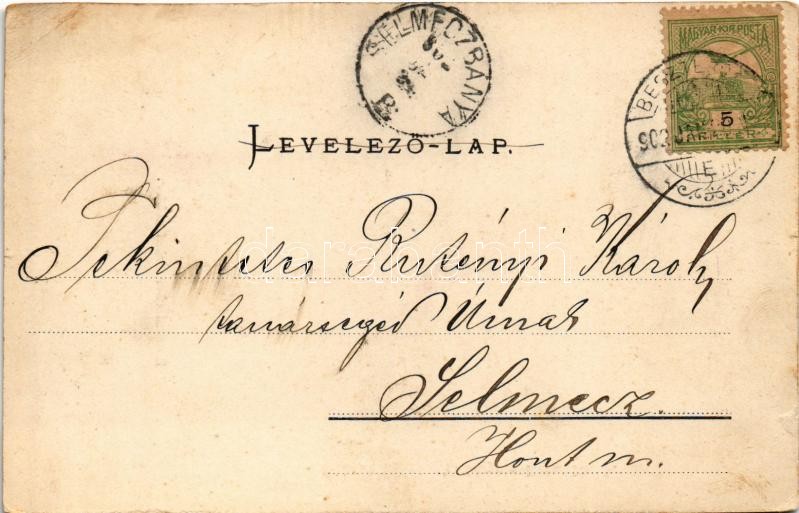 SELMECZBÁNYA
MAGYAR KIR. POSTA
5
LEVELEZŐ-LAP.
Tekintetes Rutényi Károly
tanársegéd Úrnak
Selmecz.
Hont m.